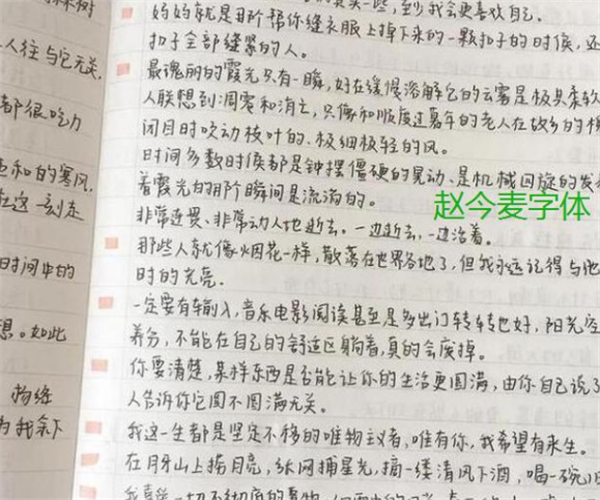 林树
人往与它无关.
都很吃力
和的寒风.
在这一刻走
时间中的
想。如此
物缝
为我余下
一些,至少我会更喜欢自己.
妈妈就是用阶帮你缝衣服上掉下来的一颗扣子的时候,还
扣子全部缝紧的人。
最瑰丽的霞光只有一瞬,好在缓慢溶解它的云雾是极具柔软
人联想到凋零和消亡,只像和顺度过暮年的老人在故乡的
闭目时吹动枝叶的、极细极轻的风。
时间多数时候都是钟摆僵硬的晃动、是机械回旋的发
着霞光的那阶瞬间是流淌的。
赵今麦字体
非常连贯、非常动人地逝去,一边逝去,一边活着。
那些人就像烟花一样,散落在世界各地了,但我永远记得与他
时的光亮.
一定要有输入,音乐电影阅读甚至是多出门转转也好,阳光空
养分,不能在自己的舒适区躺着,真的会废掉。
你要清楚,某样东西是否能让你的生活更圆满,由你自己说了
人告诉你它圆不圆满无关。
我这一生都是坚定不移的唯物主义者,唯有你,我希望有来生。
在月牙山上捞月亮,纸网捕星光,摘一缕清风下酒,喝一碗
我喜欢一切不彻底的事物